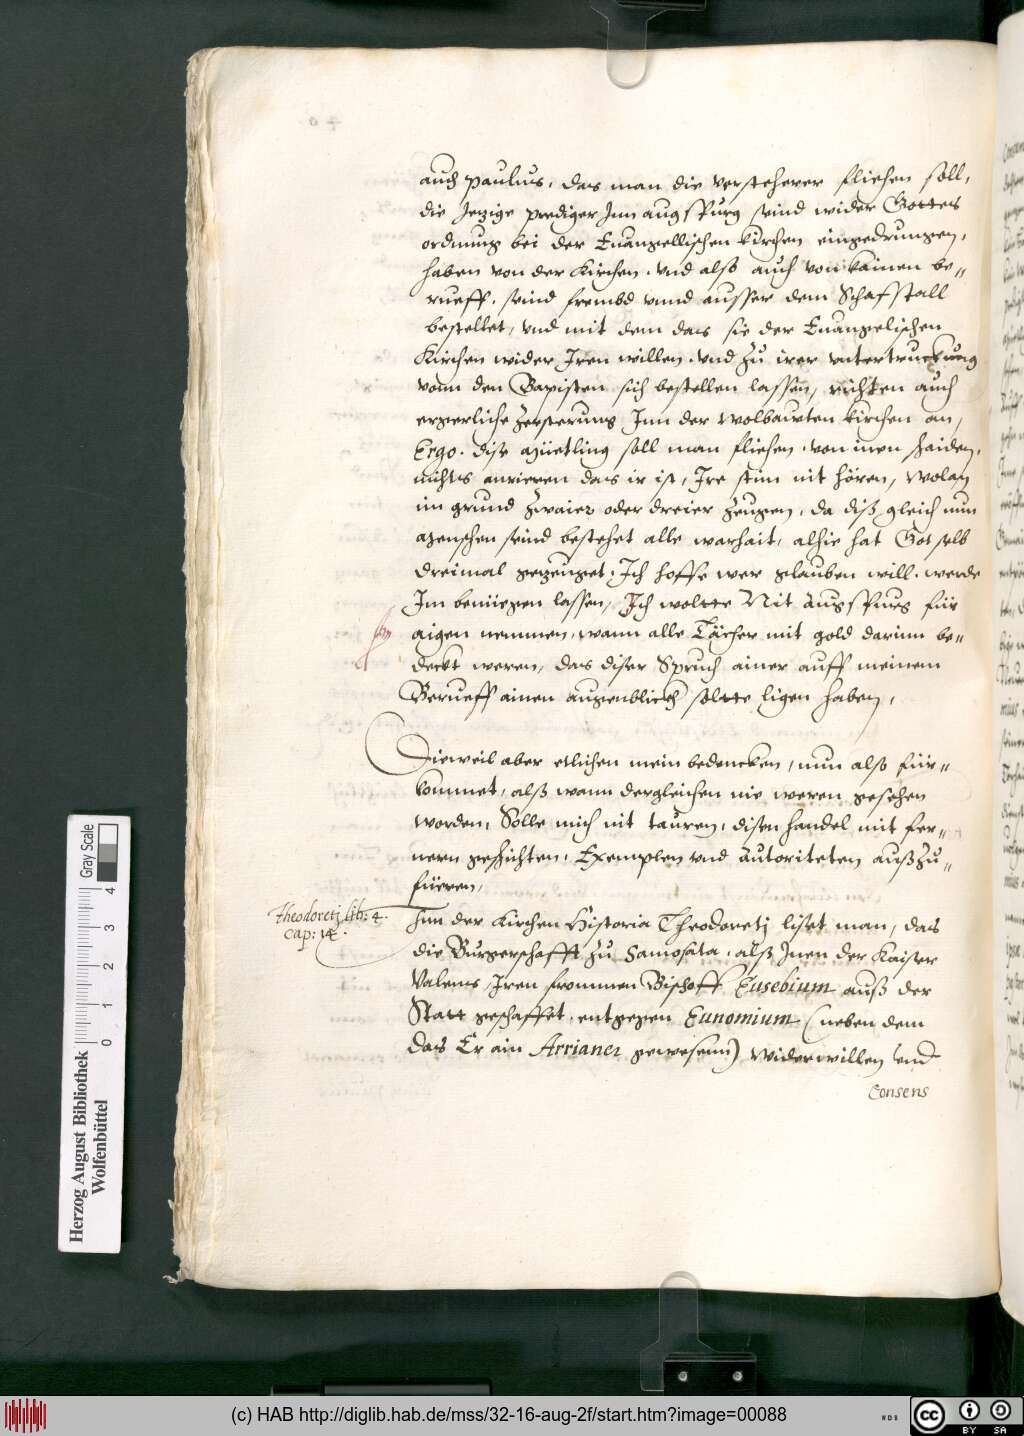 auch Paulus, das man die verstehrer fliehen soll,
die Jezige prediger Jnn augspurg seind wider Gottes
ordnung bei der Euangellischen kirchen eingedrungen,
haben von der Kirchen, vnd also auch von kainen be-
rueff, seind frembd vnnd ausser dem Schafstall
bestellet, vnd mit dem das sie der Euangelischen
Kirchen wider Jren willen, vnd zu irer vntertruckung
vonn den Bapisten sich bestellen lassen, richten auch
ergerliche zersterung Jnn der wolbawten kirchen an,
Ergo. dise müetling soll man fliehen, von inen schaiden,
nichts anrieren das ir ist, Jre stim nit hören, Wolan
im grund zwaier oder dreier zeugen, da diß gleich nun
menschen seind bestehet alle warhait, alhie hat Got selb
dreimal gezeuget, Jch hoffe wer glauben will, werde
Jm beniegen lassen, Jch woltte Nit Augspurg für
aigen nemmen, wann alle Tächer mit gold darinn be-
deckt weren, das diser Spruch ainer auff meinem
Berueff ainen augenblickh soltte ligen haben,
Dieweil aber etlichen mein bedencken, nun also für-
kommet, alß wann dergleichen nie weren gesehen
worden, Solle mich nit tauren, disen handel mit fer-
nern geschichten, Exemplen vnd autoriteten außzu-
füeren,
Theodoretj lib: 4.
Cap: 14.
Jnn der Kirchen Historia Theodoretj liset man, das
die Burgerschafft zu Samosata, alß Jnen der Kaiser
Valens, Jren frommen Bischoff Eusebium auß der
Statt geschaffet, entgegen Eunomium (neben dem
das Er ain Arrianer gewesenn) widerwillen vnd
Consens
Herzog August Bibliothek
Wolfenbüttel
0 1 2 3 4
Gray Scale
(c) HAB http://diglib.hab.de/mss/32-16-aug-2f/start.htm?image=00088
WDB
cc BY SA